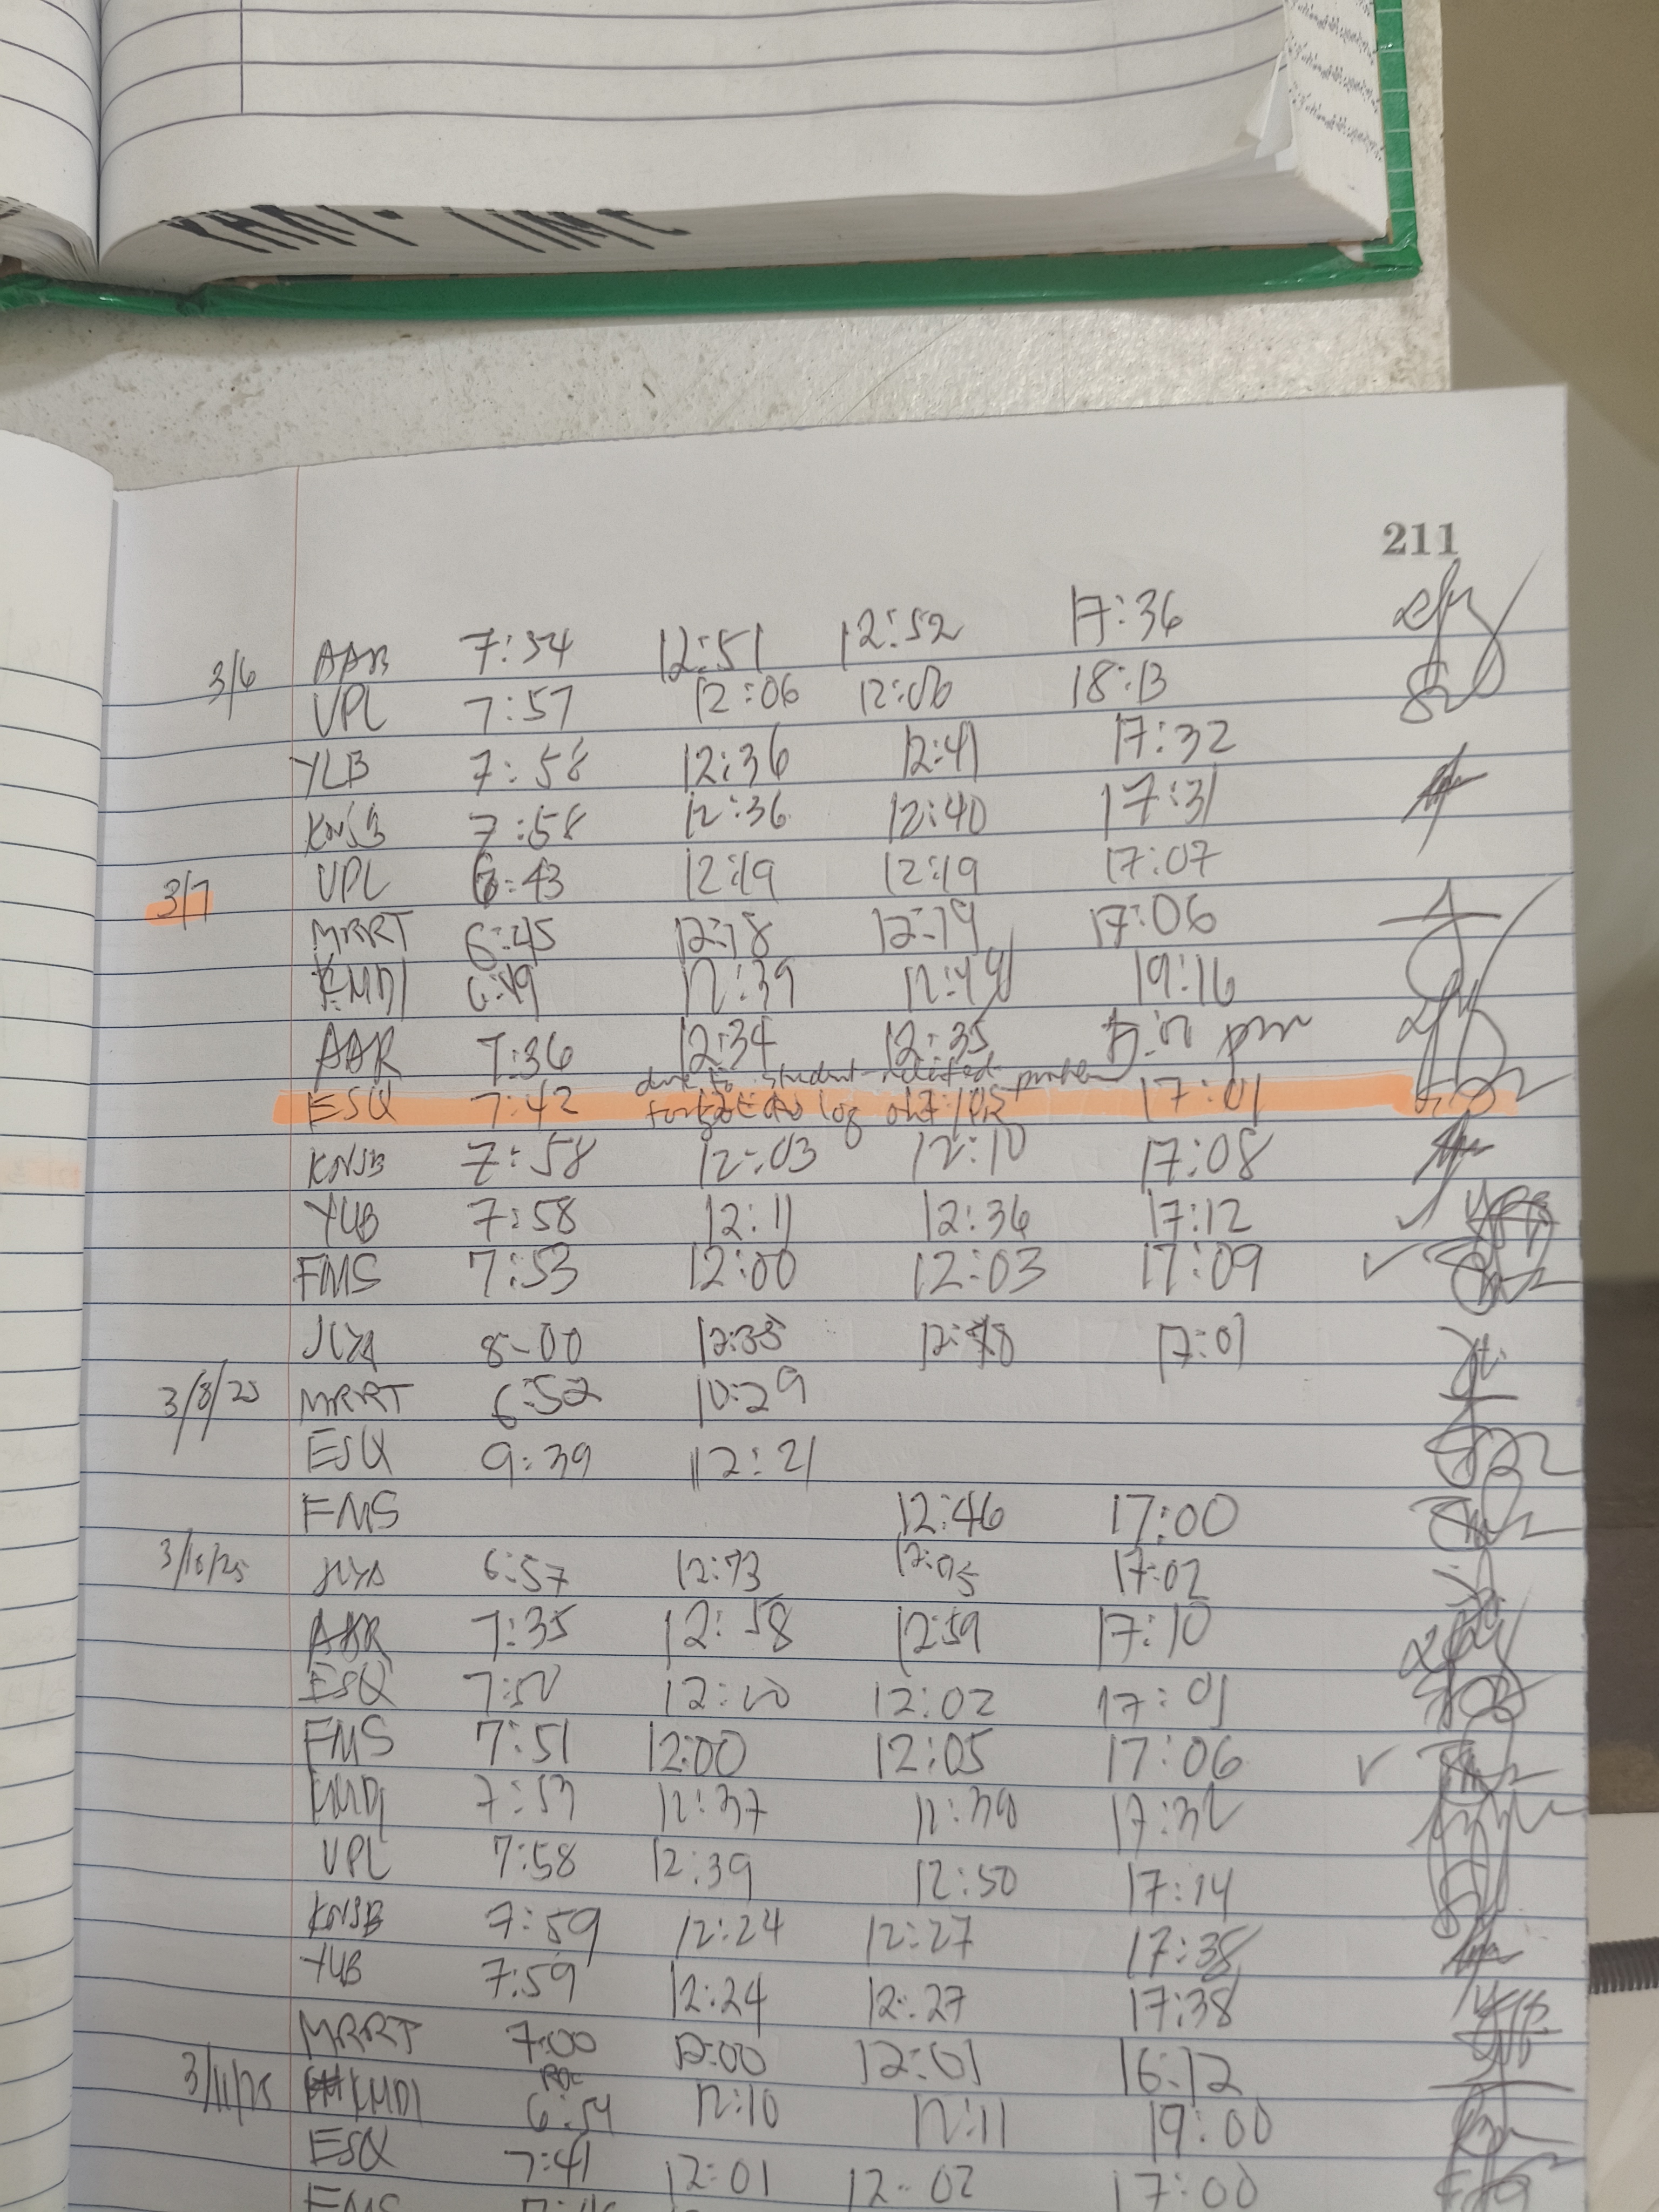 211
3/6 AAR 7:34 12:51 12:52 17:36
VPL 7:57 12:06 12:06 18:13
YLB 7:58 12:36 12:41 17:32
KNSB 7:58 12:36 12:40 17:31
3/7 VPL 6:43 12:19 12:19 17:07
MRRT 6:45 12:18 12:19 17:06
KMDI 6:49 12:39 17:16
AAR 7:36 12:34 12:35 pm
due to student-related problem
ESQ 7:42 forgot to log out / in 17:01
KNSB 7:58 12:03 12:10 17:08
YLB 7:58 12:11 12:36 17:12
FMS 7:53 12:00 12:03 17:09
8:00 12:35 17:01
3/8/25 MRRT 6:52 10:29
ESQ 9:39 12:21
FMS 12:46 17:00
3/10/25 6:57 17:02
AAR 7:35 12:58 12:59 17:10
ESQ 7:50 12:00 12:02 17:01
FMS 7:51 12:00 12:05 17:06
KMDI 7:53 12:37 12:39 17:32
VPL 7:58 12:39 12:50 17:14
KNSB 7:59 12:24 12:27 17:38
YLB 7:59 12:24 12:27 17:38
MRRT 7:00 12:00 12:01 16:12
3/11/25 KMDI 6:54 12:10 12:11 19:00
ESQ 7:41 12:01 12:02 17:00
FMS